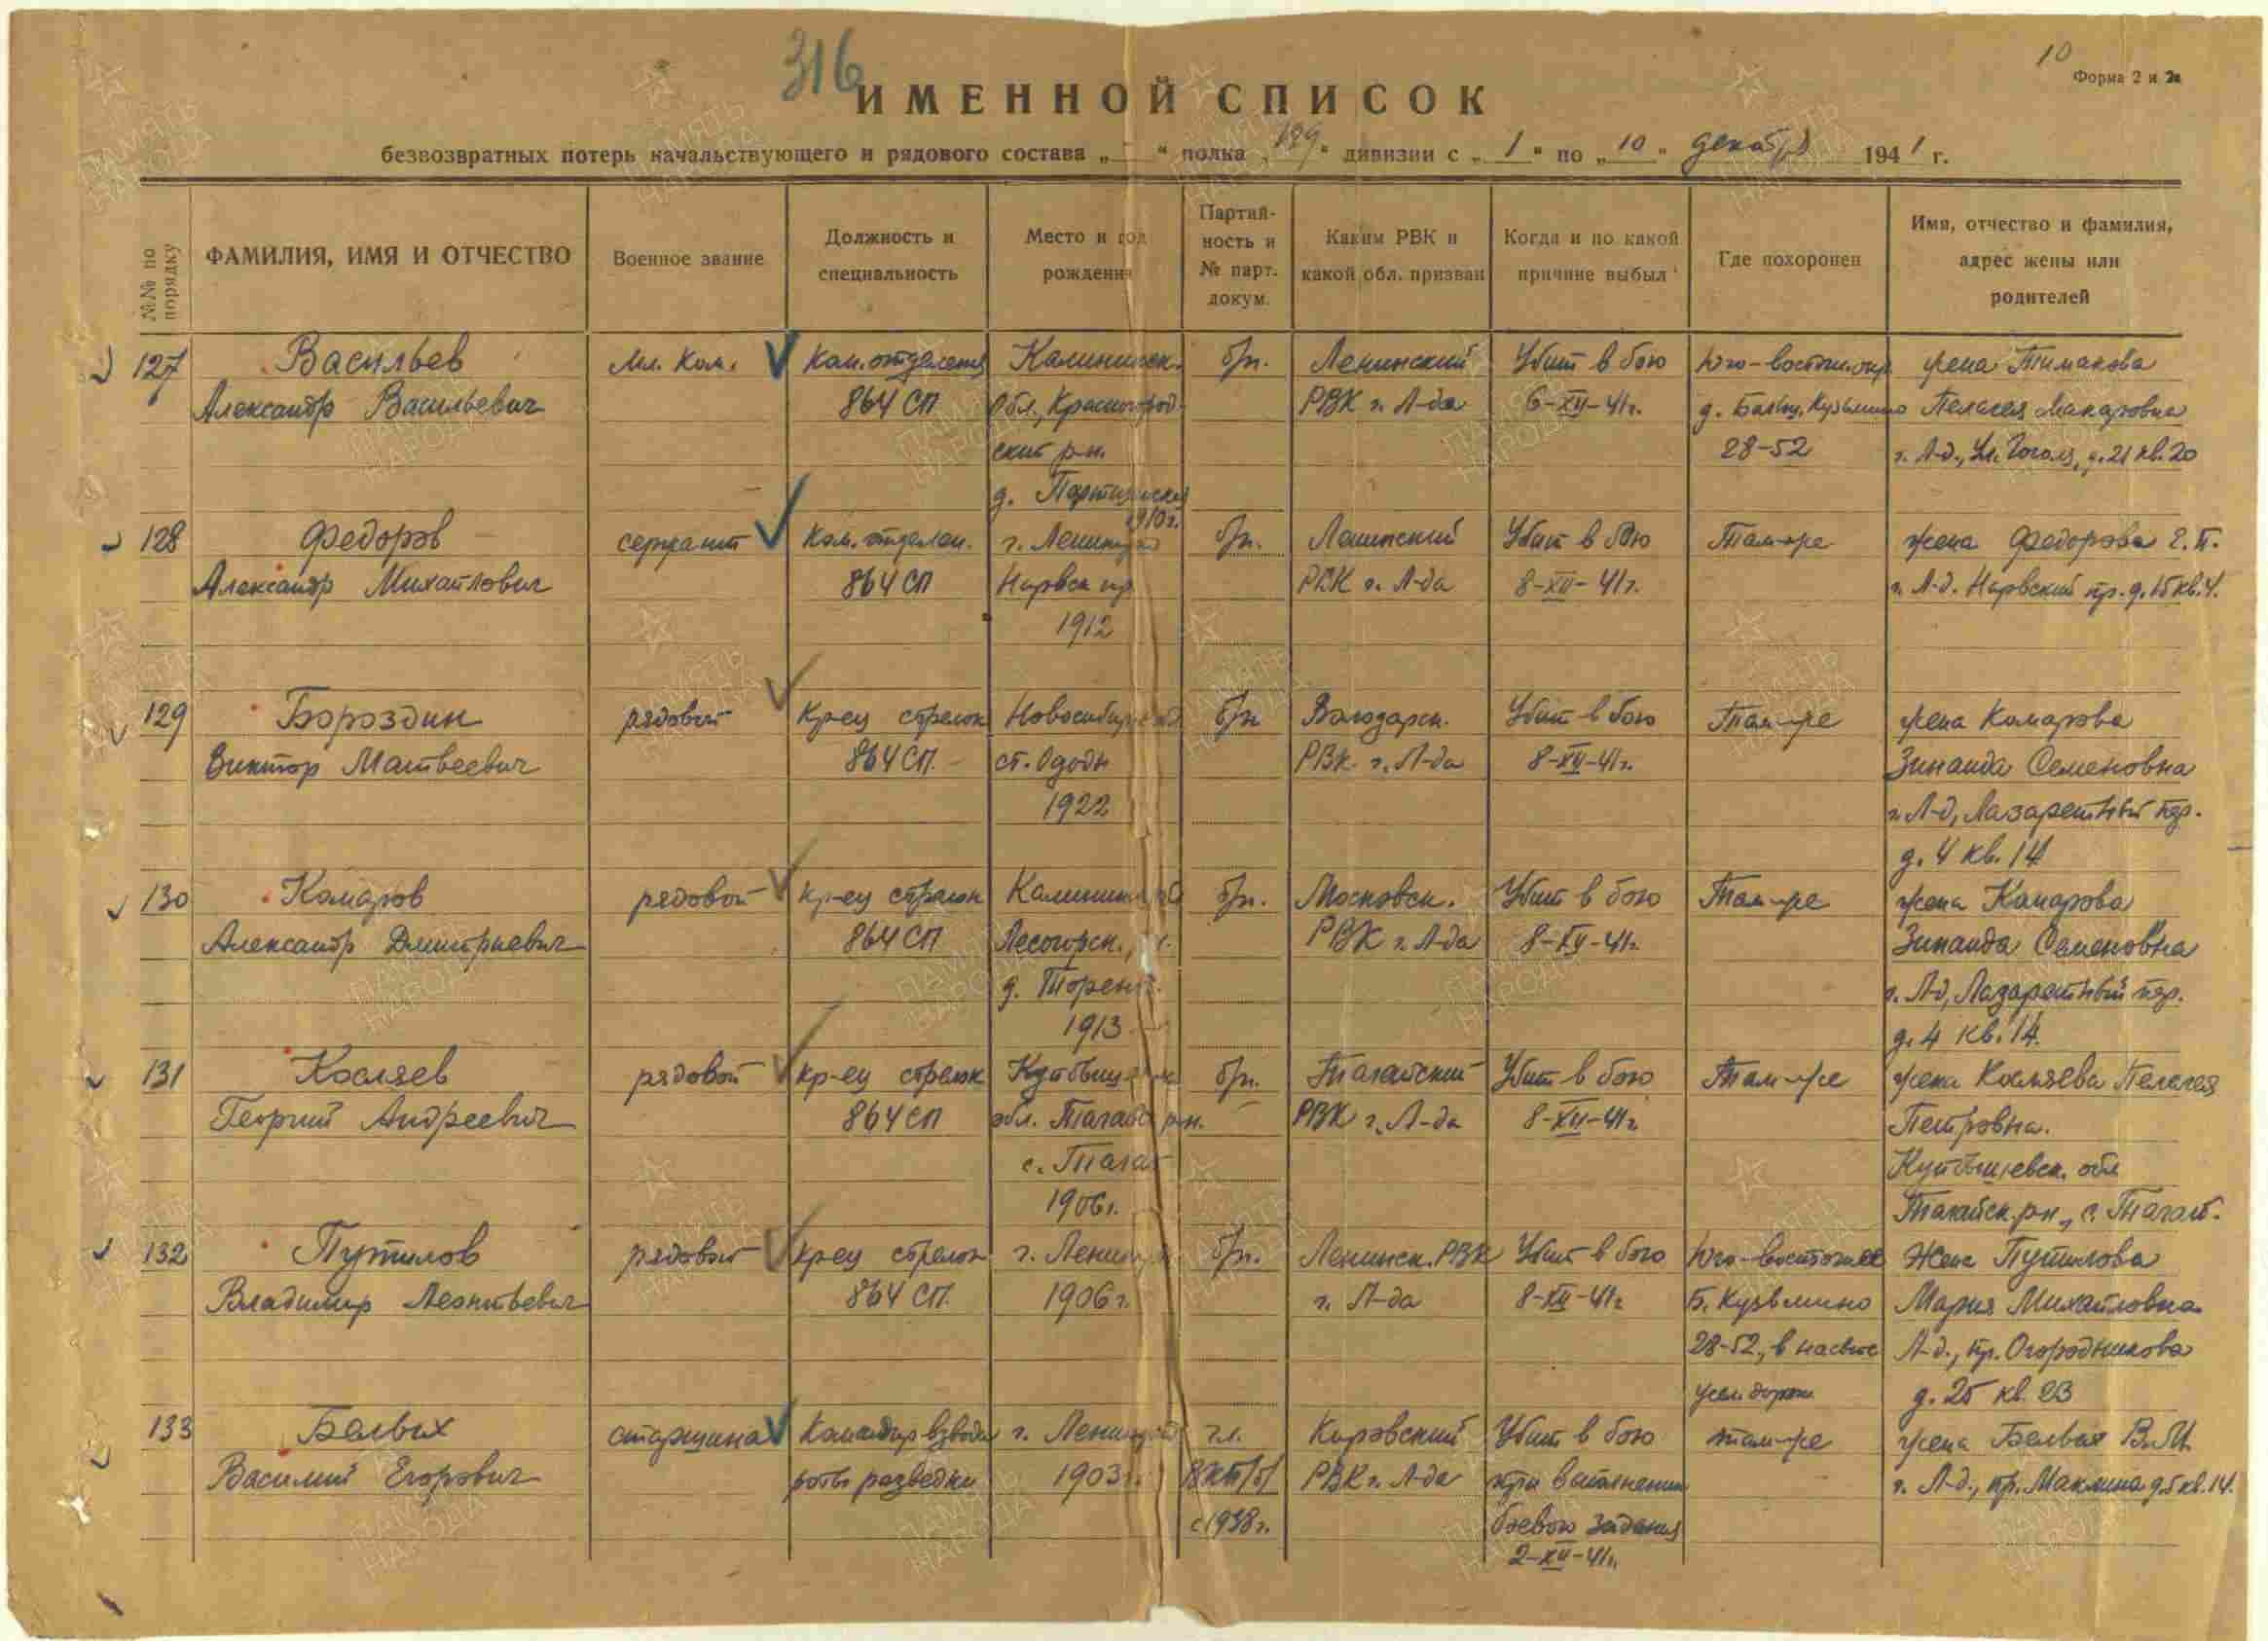 316
10
Форма 2 и 2а
ИМЕННОЙ СПИСОК
безвозвратных потерь начальствующего и рядового состава „ - “ полка „ “ дивизии с „ 1 “ по „ 10 “ декабря 1941 г.
№№ по порядку
ФАМИЛИЯ, ИМЯ И ОТЧЕСТВО
Военное звание
Должность и
специальность
Место и год
рождения
Партий-
ность и
№ парт.
докум.
Каким РВК и
какой обл. призван
Когда и по какой
причине выбыл
Где похоронен
Имя, отчество и фамилия,
адрес жены или
родителей
127 Васильев Мл. Ком. Ком. отделения б/п. Ленинский Убит в бою жена Тимакова
Александр Васильевич 864 СП Обл., Красногород- РВК г. Л-да 6-XII-41г. Пелагея Макаровна
ский р-н. 28-52 г. Л-д., Ул. Гоголя, д. 21 кв. 20
д.
1910г.
128 Федоров сержант Ком. отделен. г. Ленинград б/п. Ленинский Убит в бою Там-же жена Федорова
Александр Михайлович 864 СП Нарвск пр РВК г. Л-да 8-XII-41г. г. Л-д. Нарвский пр. д. 15 кв. 4.
1912
129 Бороздин рядовой Кр-ец стрелок б/п Володарск. Убит в бою Там-же жена Комарова
Виктор Матвеевич 864 СП. ст. РВК г. Л-да 8-XII-41г. Зинаида Семеновна
1922 г. Л-д, Лазаретный пер.
д. 4 кв. 14
130 Комаров рядовой кр-ец стрелок б/п. Московск. Убит в бою Там-же жена Комарова
Александр Дмитриевич 864 СП Лесогорск. РВК г. Л-да 8-XII-41г. Зинаида Семеновна
д. г. Л-д, Лазаретный пер.
1913 д. 4 кв. 14.
131 Косляев рядовой кр-ец стрелок б/п. Тагайский Убит в бою Там-же жена Косляева Пелагея
Георгий Андреевич 864 СП обл. р-н. РВК г. Л-да 8-XII-41г. Петровна.
с. Тагай Куйбышевск. обл
1906г. Тагайск. р-н, с. Тагай.
132 Путилов рядовой кр-ец стрелок г. б/п. Ленинск. РВК Убит в бою Юго-восточнее Жена Путилова
Владимир Леонтьевич 864 СП. 1906г. г. Л-да 8-XII-41г Б. Кузьмино Мария Михайловна
28-52, в Л-д., пр. Огородникова
д. 25 кв. 23
133 Белых старшина Командир взвода г. Ленинград Кировский Убит в бою там-же жена Белых В. И.
Василий Егорович роты разведки 1903г. ВКП/б/ РВК г. Л-да при выполнении г. Л-д., пр. Маклина д. 5 кв. 14.
с 1938г. боевого задания
2-XII-41г.